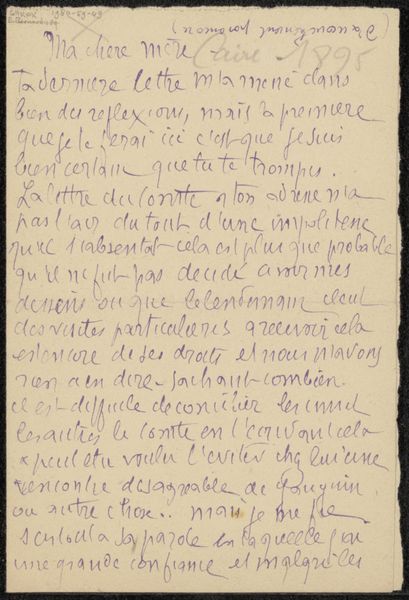 (Commencement par moi)
Ma chère mère Caire 1895
Ta derniere lettre m'a mené dans
bien des reflexions, mais la premiere
que je te ferai ici c'est que je suis
bien certain que tu te trompes.
La lettre du Comte a ton adresse n'a
pas l'air du tout d'une impolitesse
qu'il s'absentat cela est plus que probable
qu'il ne fut pas decidé a voir mes
dessins ou que le lendemain il eut
des visites particulieres a recevoir cela
est encore de ses droits et nous n'avons
rien a en dire. Sachant combien
il est difficile de concilier les uns et
les autres le comte en l'ecrivant cela
a peut etre voulu l'eviter chez lui une
rencontre desagreable de Gauguin
ou autre chose.. mais je me fie
surtout a sa parole en laquelle j'ai
une grande confiance et malgré les